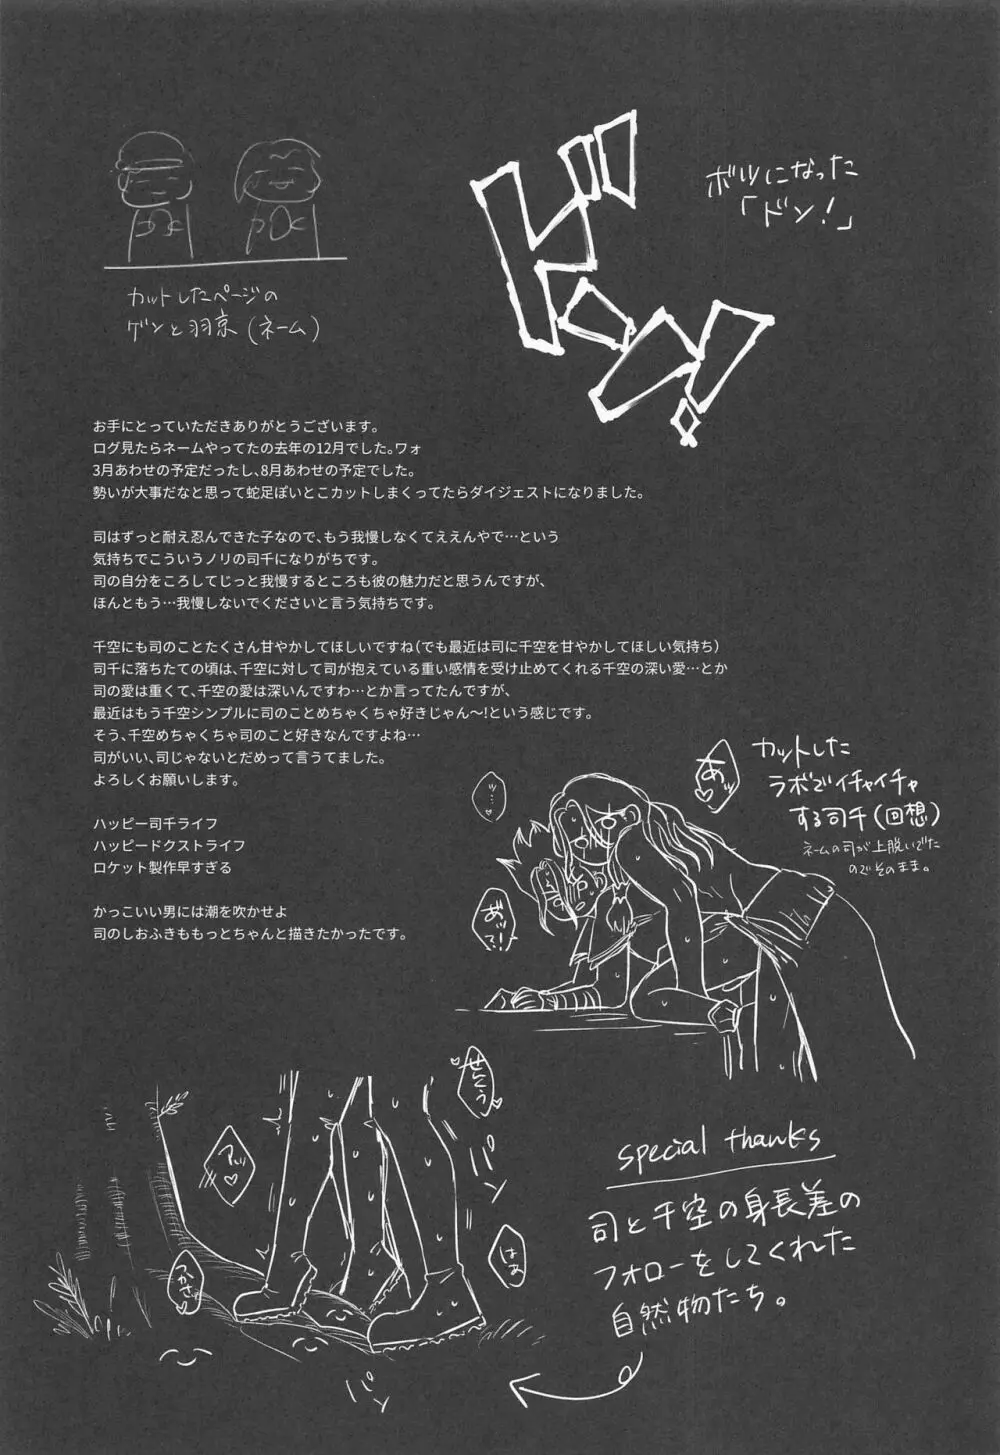 ボツになった
「ドン!」
ドン!
カットしたページの
ゲンと羽京(ネーム)
お手にとっていただきありがとうございます。
ログ見たらネームやってたの去年の12月でした。ワォ
3月あわせの予定だったし、8月あわせの予定でした。
勢いが大事だなと思って蛇足ぽいとこカットしまくってたらダイジェストになりました。
司はずっと耐え忍んできた子なので、もう我慢しなくてええんやで…という
気持ちでこういうノリの司千になりがちです。
司の自分をころしてじっと我慢するところも彼の魅力だと思うんですが、
ほんともう…我慢しないでくださいと言う気持ちです。
千空にも司のことたくさん甘やかしてほしいですね(でも最近は司に千空を甘やかしてほしい気持ち)
司千に落ちたての頃は、千空に対して司が抱えている重い感情を受け止めてくれる千空の深い愛…とか
司の愛は重くて、千空の愛は深いんですわ…とか言ってたんですが、
最近はもう千空シンプルに司のことめちゃくちゃ好きじゃん〜!という感じです。
そう、千空めちゃくちゃ司のこと好きなんですよね…
司がいい、司じゃないとだめって言うてました。
よろしくお願いします。
ハッピー司千ライフ
ハッピードクストライフ
ロケット製作早すぎる
かっこいい男には潮を吹かせよ
司のしおふきももっとちゃんと描きたかったです。
カットした
ラボでイチャイチャ
する司千(回想)
ネームの司が上脱いでた
のでそのまま。
あッ♡
ッ…♡
せんくう
パン
アッ♡
はあ
つかさ
パン
special thanks
司と千空の身長差の
フォローをしてくれた
自然物たち。